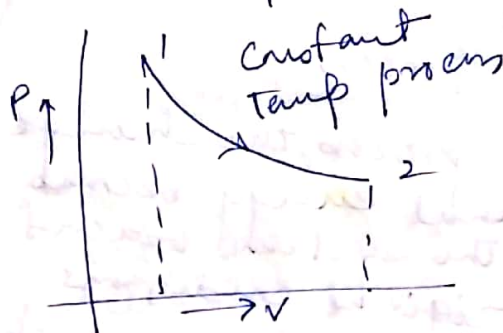 constant
Temp process
P
1
2
V